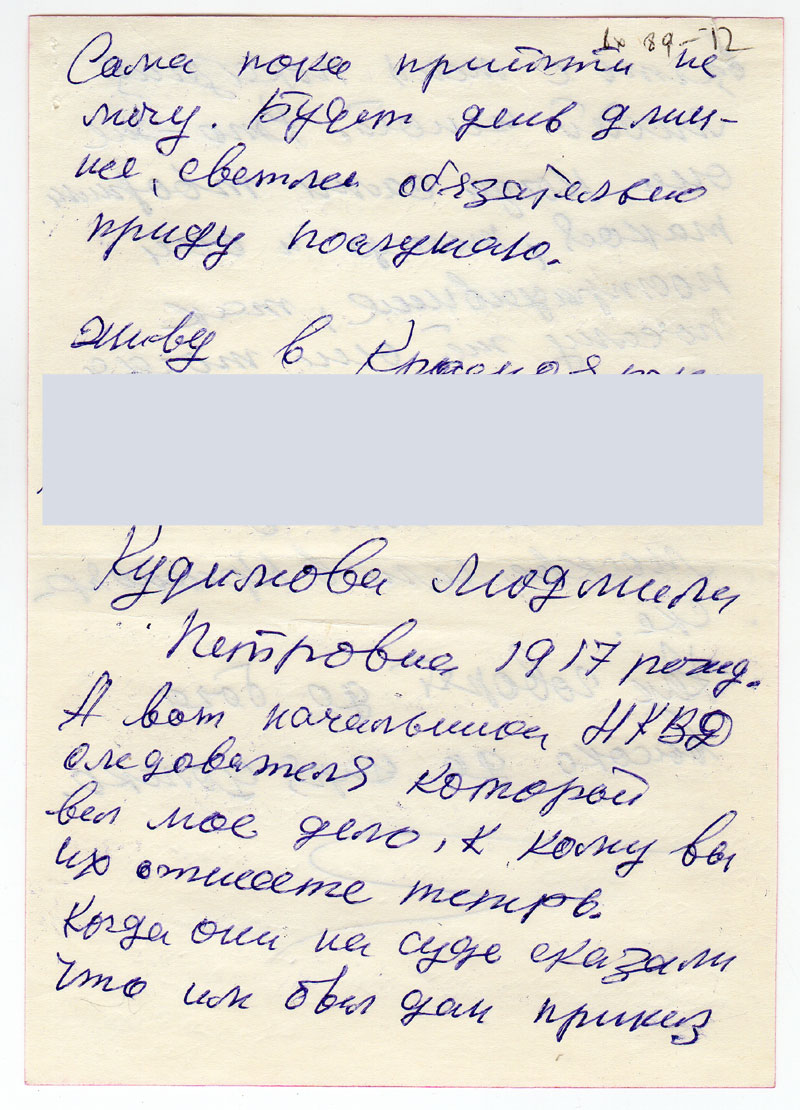 89-12
Сама пока прийти не
могу. Будет день длин-
нее, светлее обязательно
приду послушаю.
живу в
Кудимова Людмила
Петровна 1917 рожд.
А вот начальника НКВД
следователя который
вел мое дело, к кому вы
их отнесете теперь.
Когда они на суде сказали
что им был дан приказ